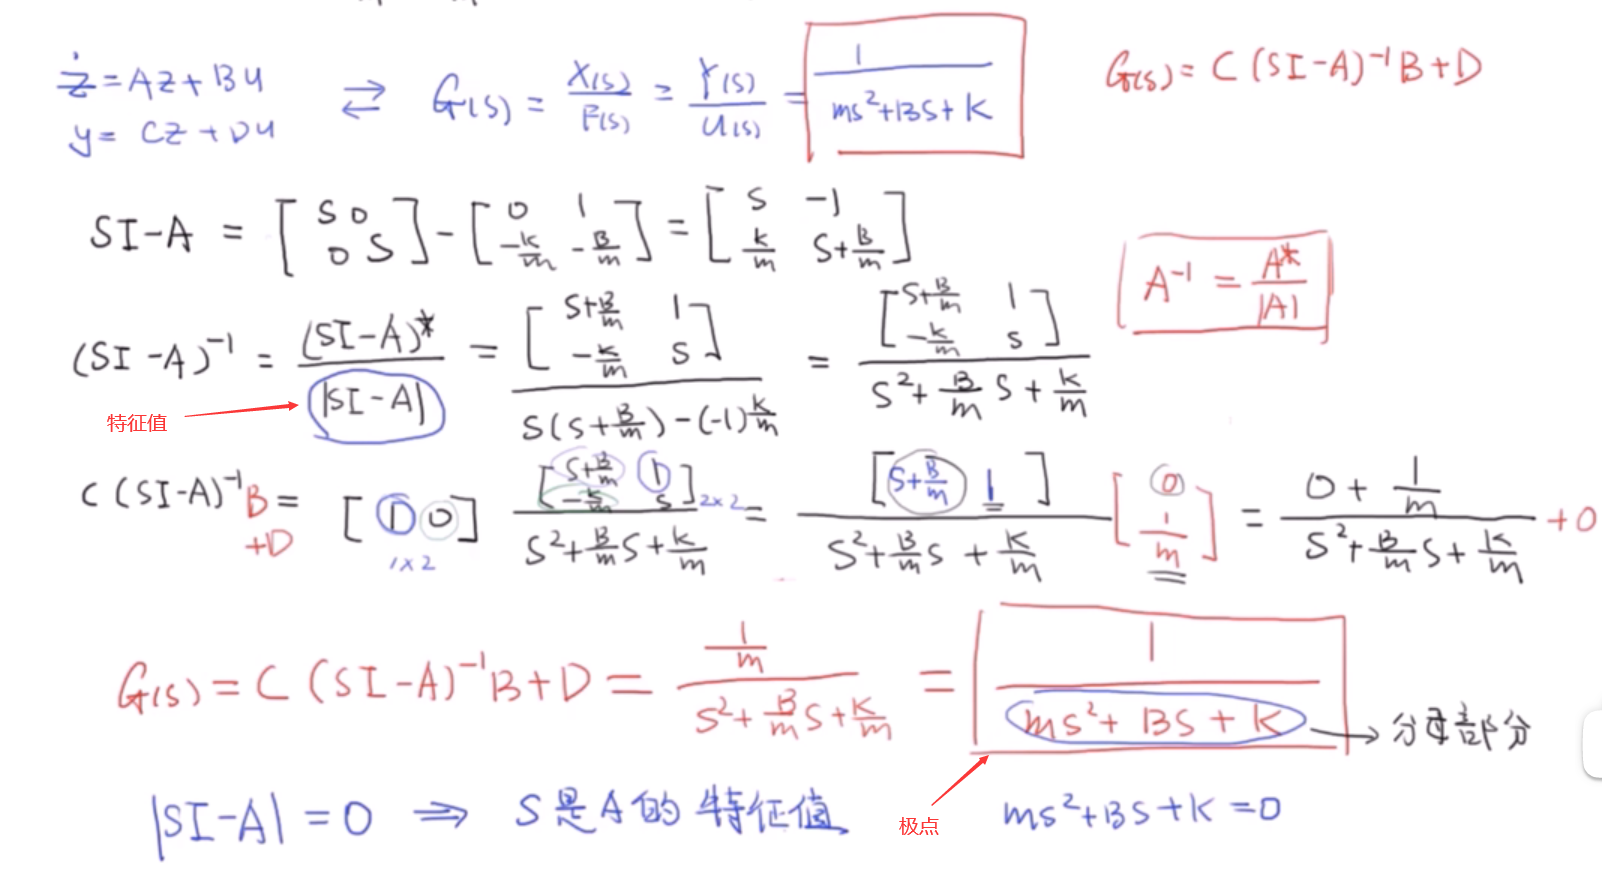 ż = Az + Bu ⇄ G(s) = X(s)/F(s) = Y(s)/U(s) = 1/(ms²+Bs+K)
y = Cz + Du
G(s) = C (SI-A)⁻¹ B + D
SI-A = [S 0; 0 S] - [0 1; -K/m -B/m] = [S -1; k/m S+B/m]
A⁻¹ = A*/|A|
(SI-A)⁻¹ = (SI-A)*/|SI-A| = [S+B/m 1; -K/m S]/(S(S+B/m)-(-1)K/m) = [S+B/m 1; -K/m S]/(S²+B/m S+K/m)
特征值
C (SI-A)⁻¹ B +D = [1 0] [S+B/m 1; -K/m S]/(S²+B/m S+K/m) = [S+B/m 1]/(S²+B/m S+K/m) [0; 1/m] = (0+1/m)/(S²+B/m S+K/m) +0
1×2
2×2
G(s) = C (SI-A)⁻¹ B + D = (1/m)/(S²+B/m S+K/m) = 1/(ms²+Bs+K) → 分母部分
|SI-A| = 0 ⇒ S是A的特征值 ms²+Bs+K=0
极点